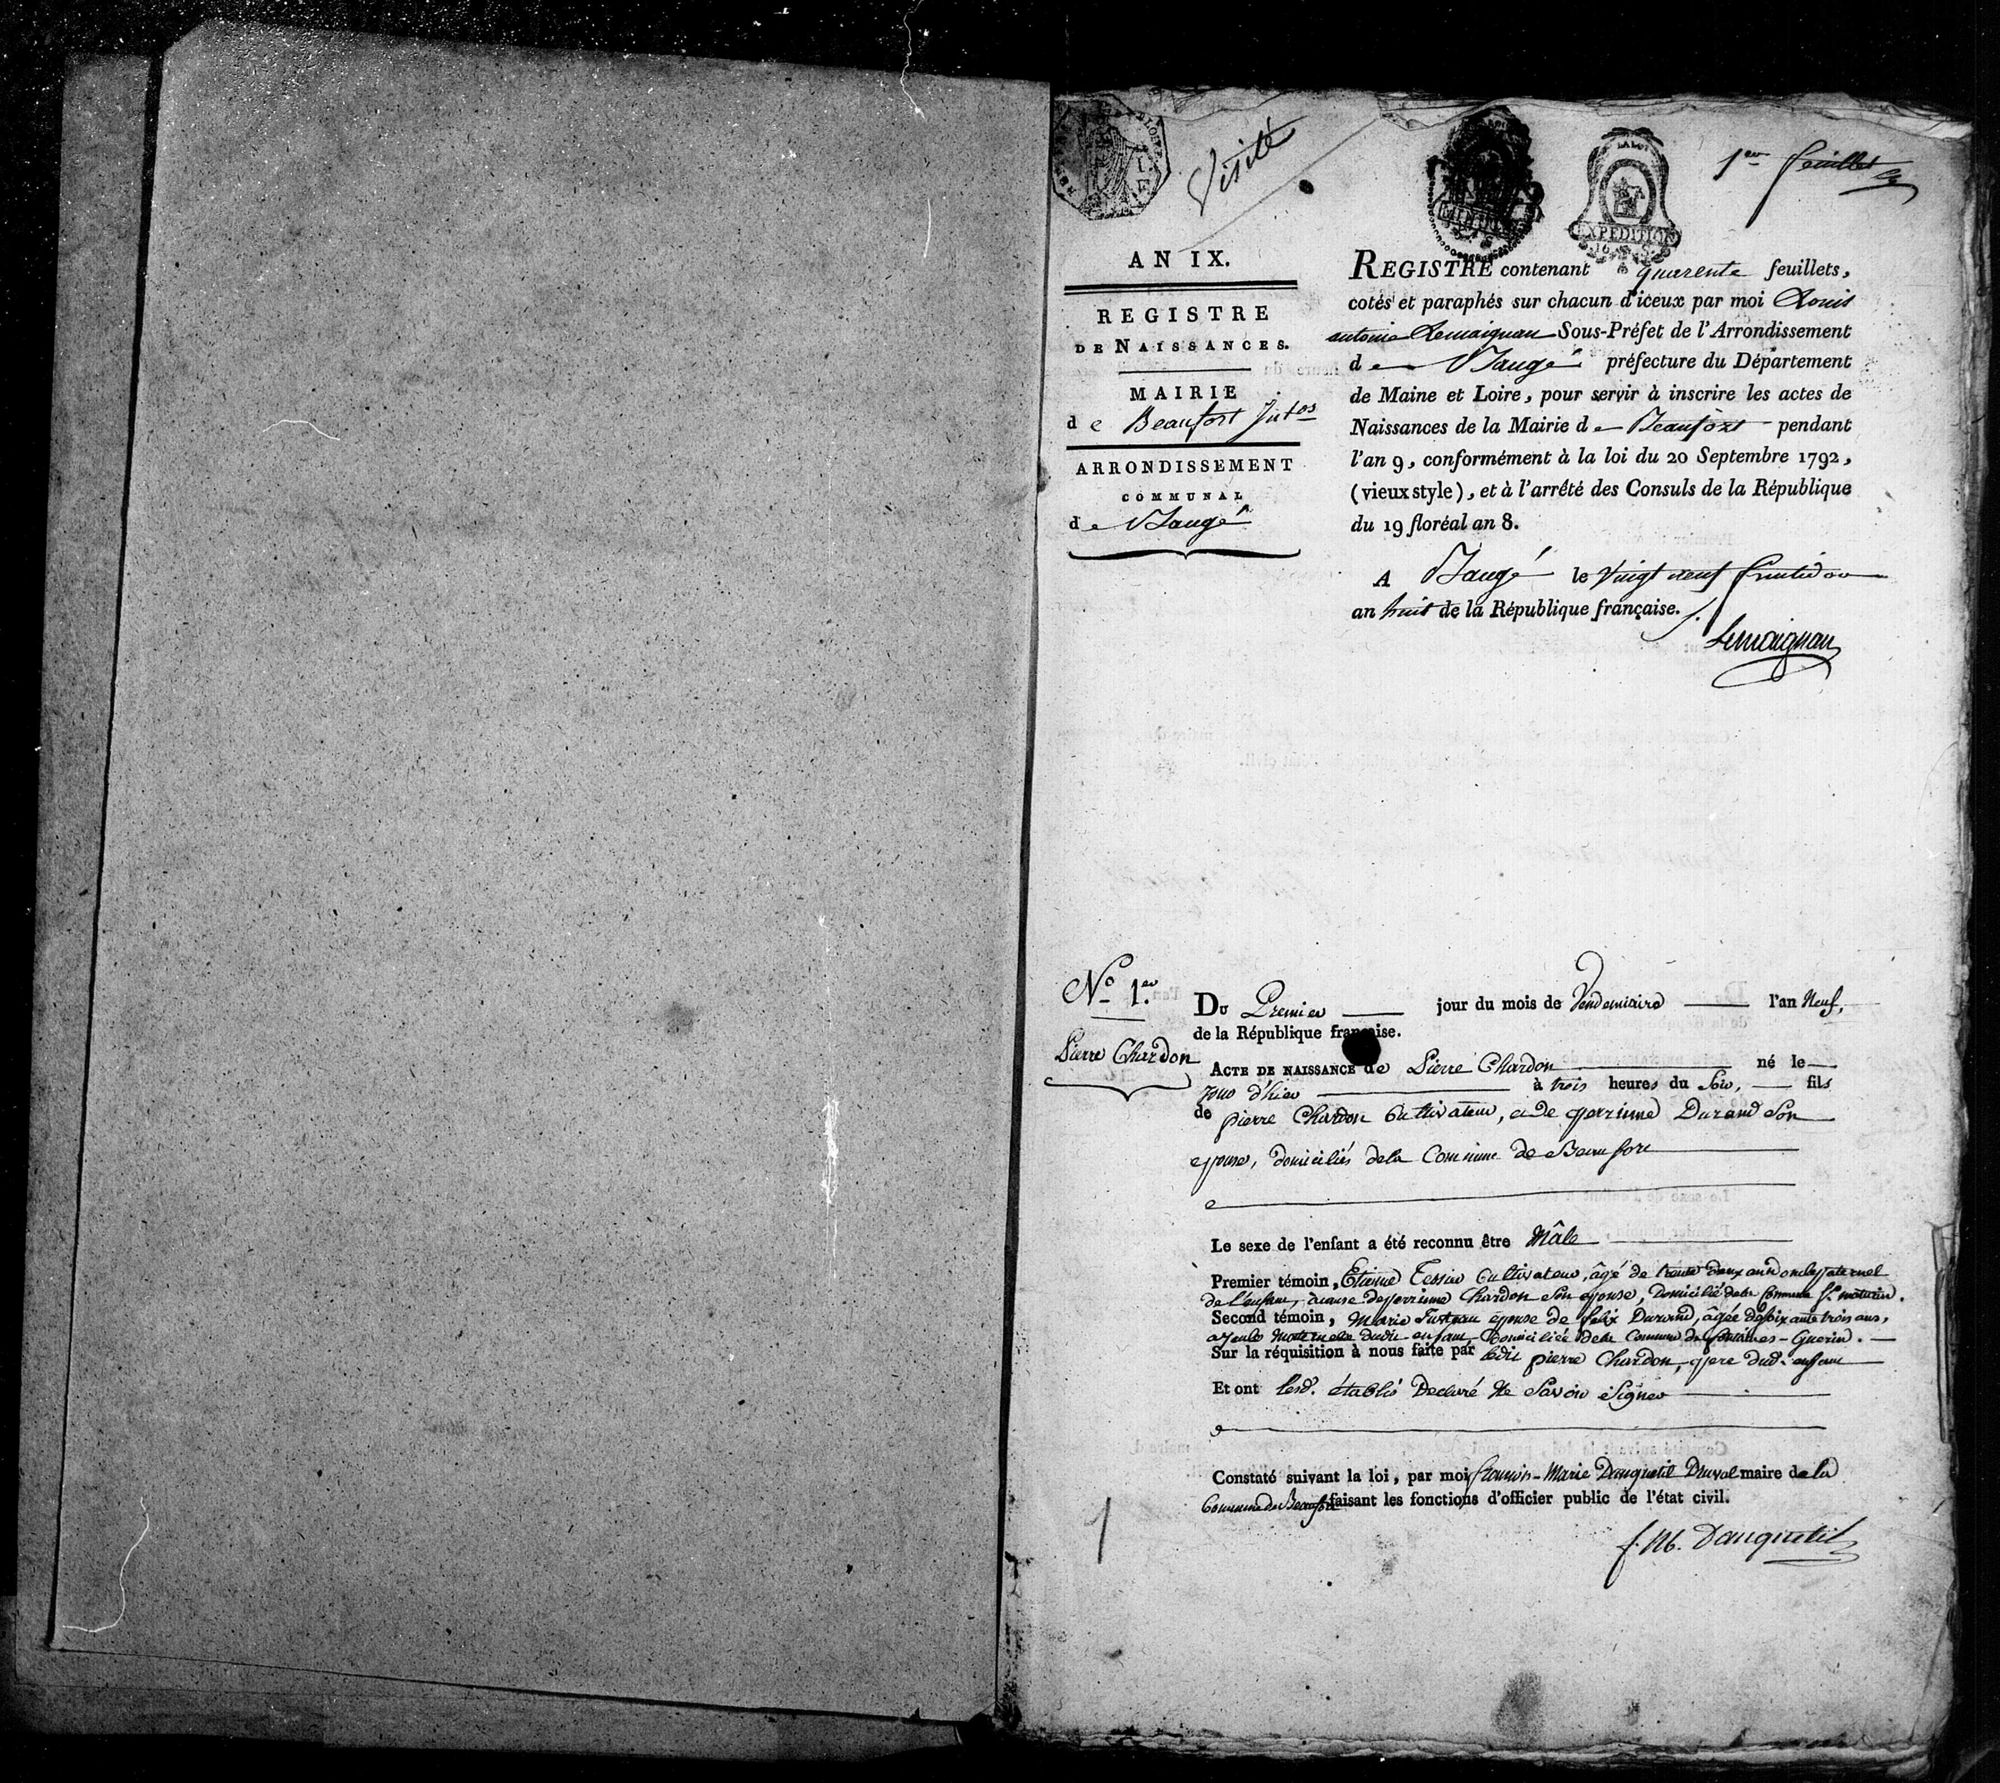 Visité
1er feuillet
MINUTE
LA LOI
EXPEDITION
AN IX.
REGISTRE
DE NAISSANCES.
MAIRIE
de Beaufort
ARRONDISSEMENT
COMMUNAL
de Baugé
REGISTRE contenant quarente feuillets,
cotés et paraphés sur chacun d'iceux par moi Louis
antoine Lemaignan Sous-Préfet de l'Arrondissement
de Baugé préfecture du Département
de Maine et Loire, pour servir à inscrire les actes de
Naissances de la Mairie de Beaufort pendant
l'an 9, conformément à la loi du 20 Septembre 1792,
(vieux style), et à l'arrêté des Consuls de la République
du 19 floréal an 8.
A Baugé le Vingt neuf fructidor
an huit de la République française.
Lemaignan
No. 1.er
Pierre Chardon
DU Premier jour du mois de Vendemiaire l'an Neuf,
de la République française.
ACTE DE NAISSANCE de Pierre Chardon né le
jour d'hier à trois heures du Soir, fils
de pierre Chardon Cultivateur, et de perrinne Durand Son
epouse, domiciliés dela Commune de Beaufort
Le sexe de l'enfant a été reconnu être Mâle
Premier témoin, Etienne Tessier Cultivateur, âgé de trente deux ans oncle paternel
de l'enfant, acause de perrinne Chardon Son epouse, Domicilié dela Commune St maturin.
Second témoin, Marie epouse de felix Durand, âgée de soixante trois ans,
ayeule maternele dudit enfant Domiciliée dela Commune de fontaines-Guerin.
Sur la réquisition à nous faite par ledit pierre Chardon, pere dud. enfant
Et ont lesd. établis Declaré Ne Savoir Signer
Constaté suivant la loi, par moi françois-Marie Danquetil Druval maire de la
Commune de Beaufort faisant les fonctions d'officier public de l'état civil.
f. M. Danquetil
1